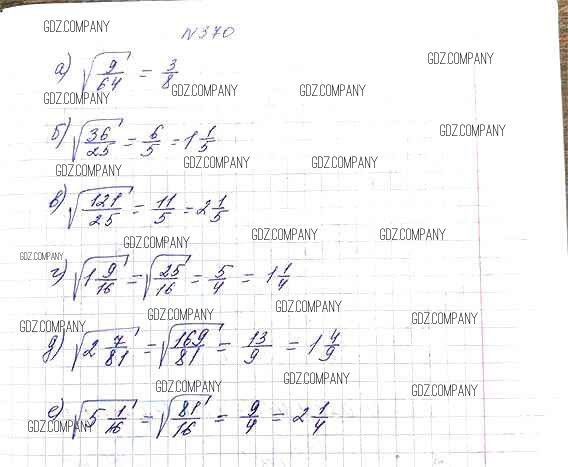 GDZ.COMPANY
N370
GDZ.COMPANY
а) √9/64 = 3/8
GDZ.COMPANY GDZ.COMPANY GDZ.COMPANY
GDZ.COMPANY
б) √36/25 = 6/5 = 1 1/5
GDZ.COMPANY GDZ.COMPANY GDZ.COMPANY
в) √121/25 = 11/5 = 2 1/5
GDZ.COMPANY GDZ.COMPANY GDZ.COMPANY
GDZ.COMPANY
г) √1 9/16 = √25/16 = 5/4 = 1 1/4
GDZ.COMPANY GDZ.COMPANY GDZ.COMPANY
GDZ.COMPANY
д) √2 7/81 = √169/81 = 13/9 = 1 4/9
GDZ.COMPANY GDZ.COMPANY GDZ.COMPANY
е) √5 1/16 = √81/16 = 9/4 = 2 1/4
GDZ.COMPANY